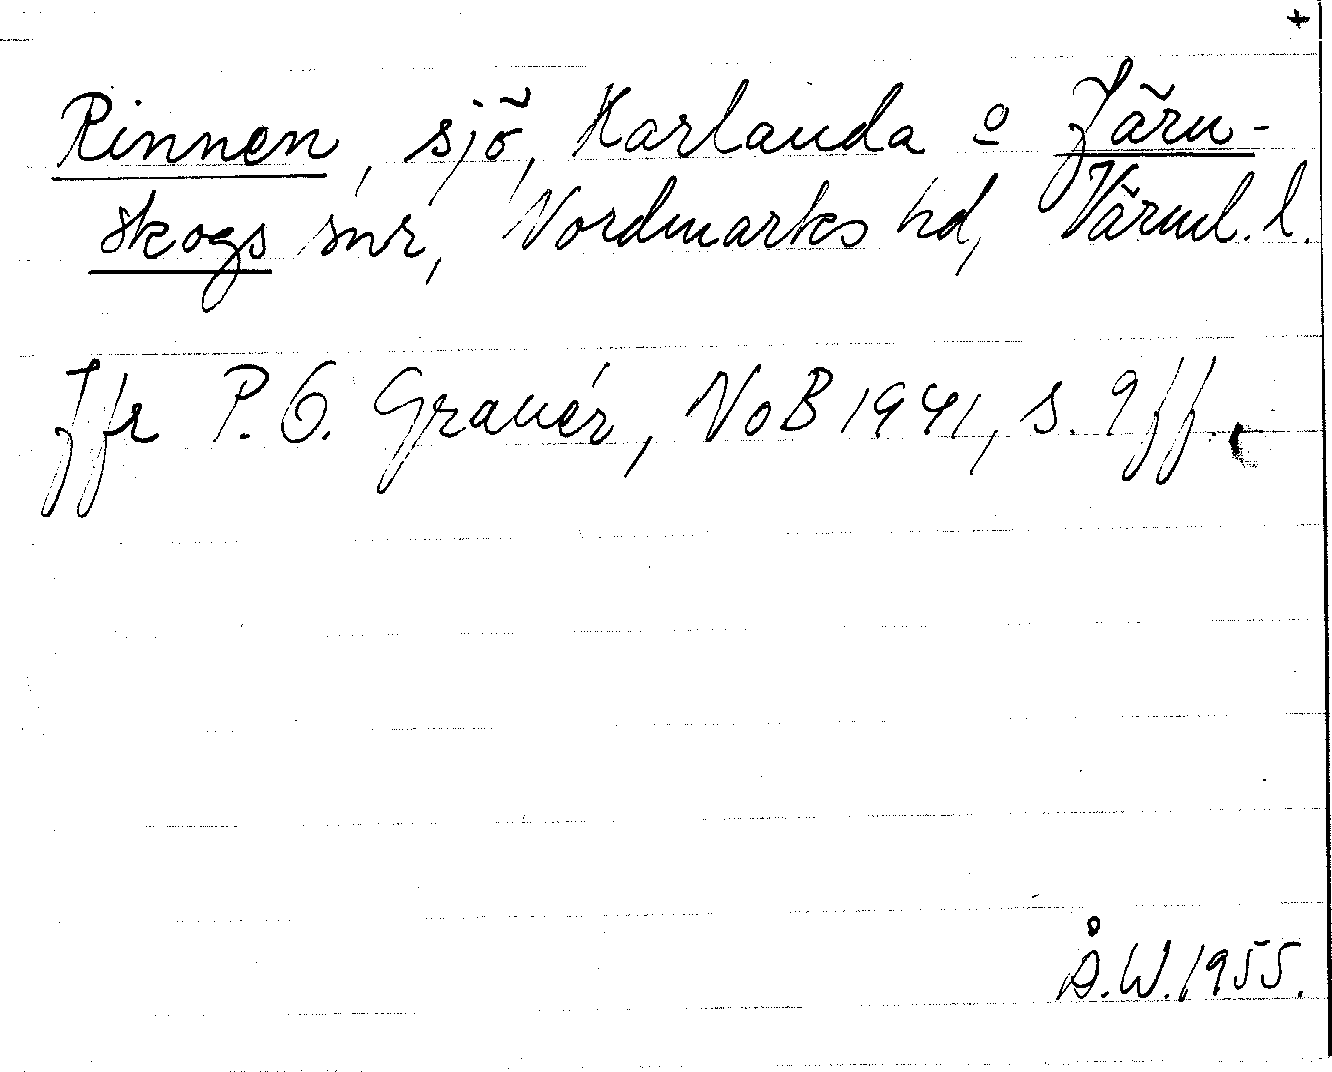 +
Rinnen, sjö, Karlanda o Järn-
skogs snr, Nordmarks hd, Värml. l.
Jfr P. O. Granér, NoB 1941, s. 9 ff.
Å.W. 1955.